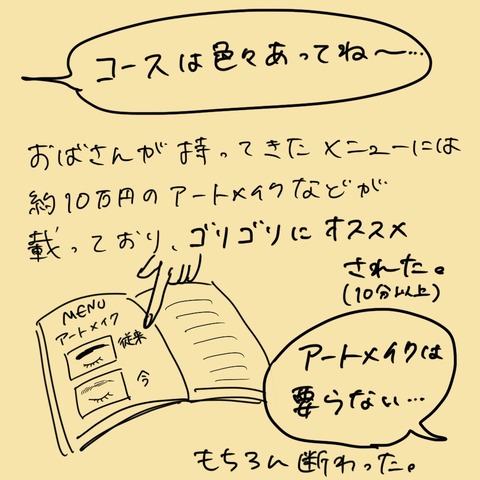 コースは色々あってね〜…
おばさんが持ってきたメニューには
約10万円のアートメイクなどが
載っており、ゴリゴリにオススメ
された。
(10分以上)
MENU
アートメイク
従来
今
アートメイクは
要らない…
もちろん断わった。